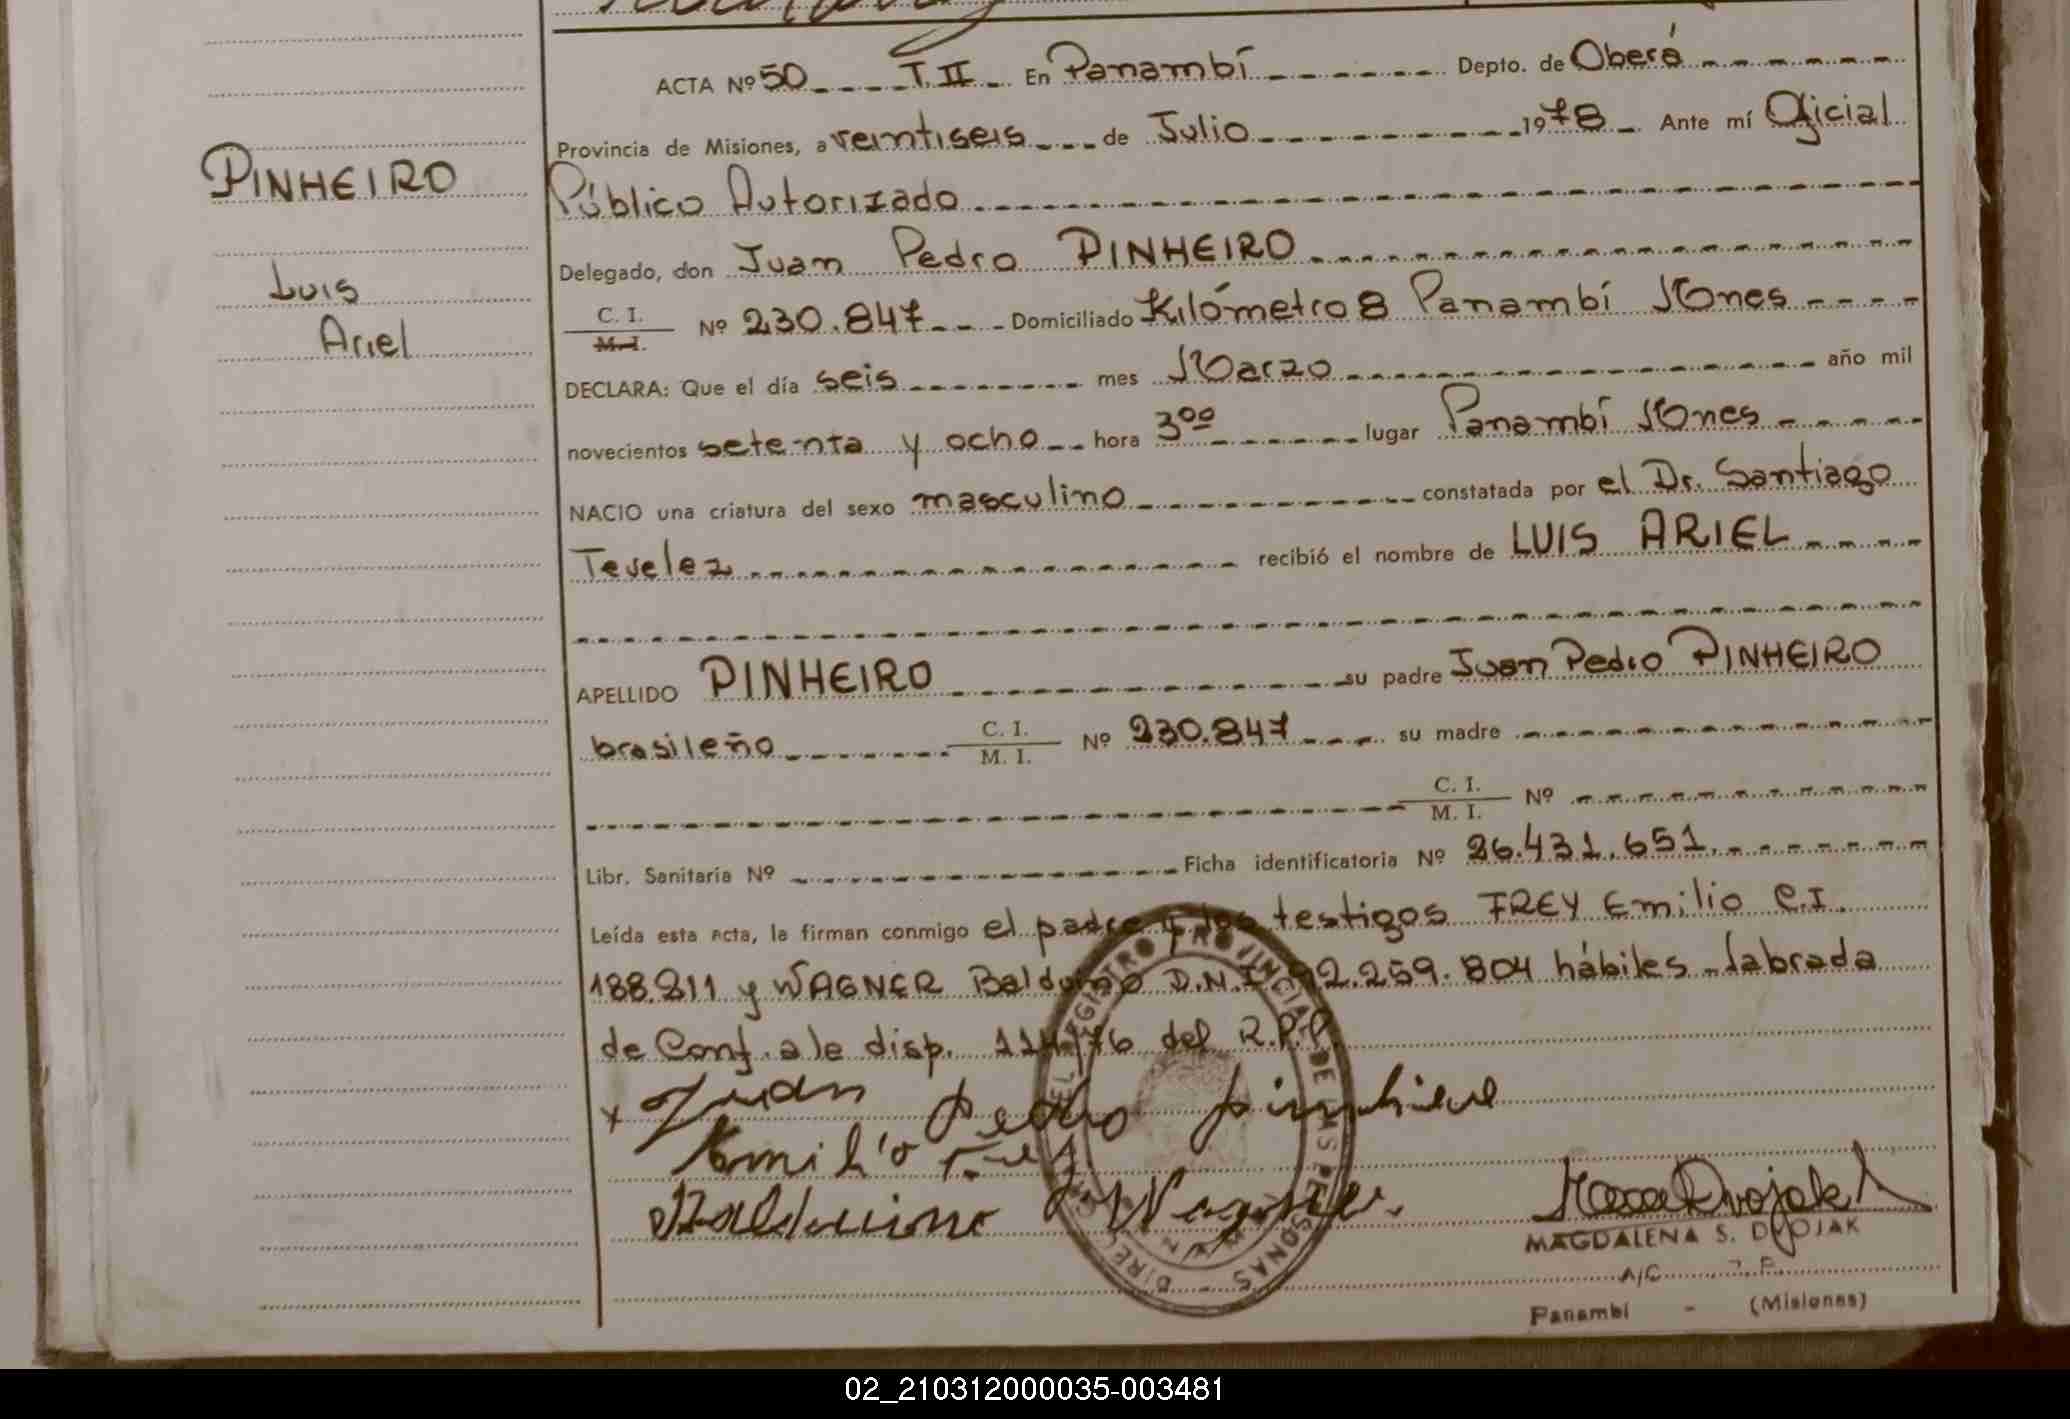 ACTA Nº 50 T. II En Panambí Depto. de Oberá
Provincia de Misiones, a veintiseis de Julio 1978 Ante mí Oficial
Público Autorizado
PINHEIRO
Luis
Ariel
Delegado, don Juan Pedro PINHEIRO
C. I. M. I. Nº 230.847 Domiciliado Kilómetro 8 Panambí Mnes
DECLARA: Que el día seis mes Marzo año mil
novecientos setenta y ocho hora 3ºº lugar Panambí Mnes
NACIO una criatura del sexo masculino constatada por el Dr. Santiago
Tevelez recibió el nombre de LUIS ARIEL
APELLIDO PINHEIRO su padre Juan Pedro PINHEIRO
brasileño C. I. M. I. Nº 230.847 su madre
C. I. M. I. Nº
Libr. Sanitaria Nº Ficha identificatoria Nº 26.431.651.
Leída esta acta, la firman conmigo el padre y los testigos FREY Emilio C.I.
188.211 y WAGNER Balduino D.N.I 92.259.804 hábiles - labrada
de Conf. a le disp. 114/76 del R.P.P.
x Juan Pedro pinheiro
Emilio Frey
Balduino Wagner
REGISTRO PROVINCIAL DE LAS PERSONAS
MAGDALENA S. DVOJAK
A/C
Panambí - (Misiones)
02_210312000035-003481